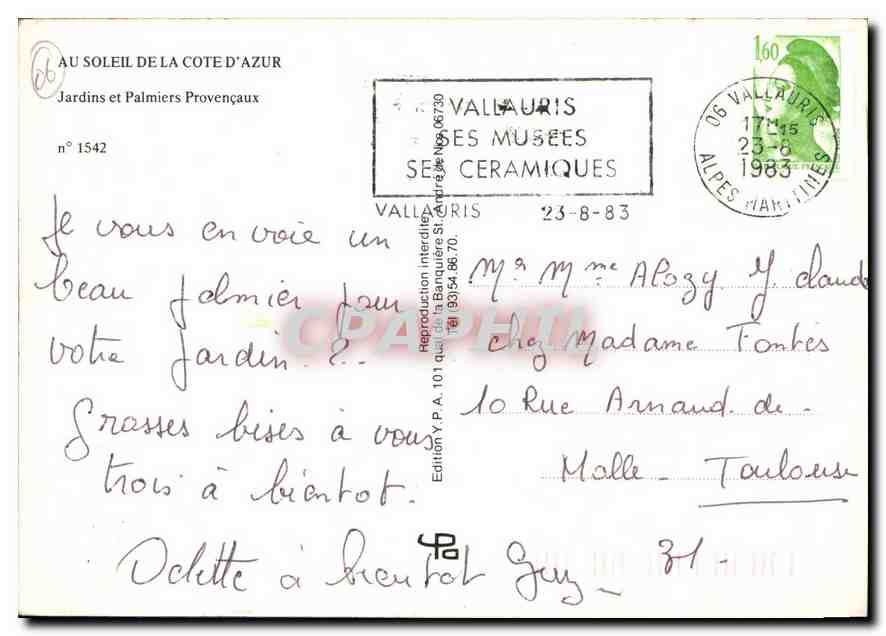 06
AU SOLEIL DE LA COTE D'AZUR
Jardins et Palmiers Provençaux
n° 1542
VALLAURIS
SES MUSEES
SES CERAMIQUES
VALLAURIS 23-8-83
1,60
06 VALLAURIS
17H15
23-8
1983
ALPES MARITIMES
Je vous envoie un
beau palmier pour
votre jardin ?..
Grosses bises à vous
trois à bientot.
Odette à bientot Guy
Reproduction interdite
Edition Y.P.A. 101 quai de la Banquière St. André de Nice 06730
Tél (93) 54.86.70.
Mr Mme Alozy J. Claude
chez Madame Fontès
10 Rue Arnaud. de -
Molle - Toulouse
31 -
CPAPHIL